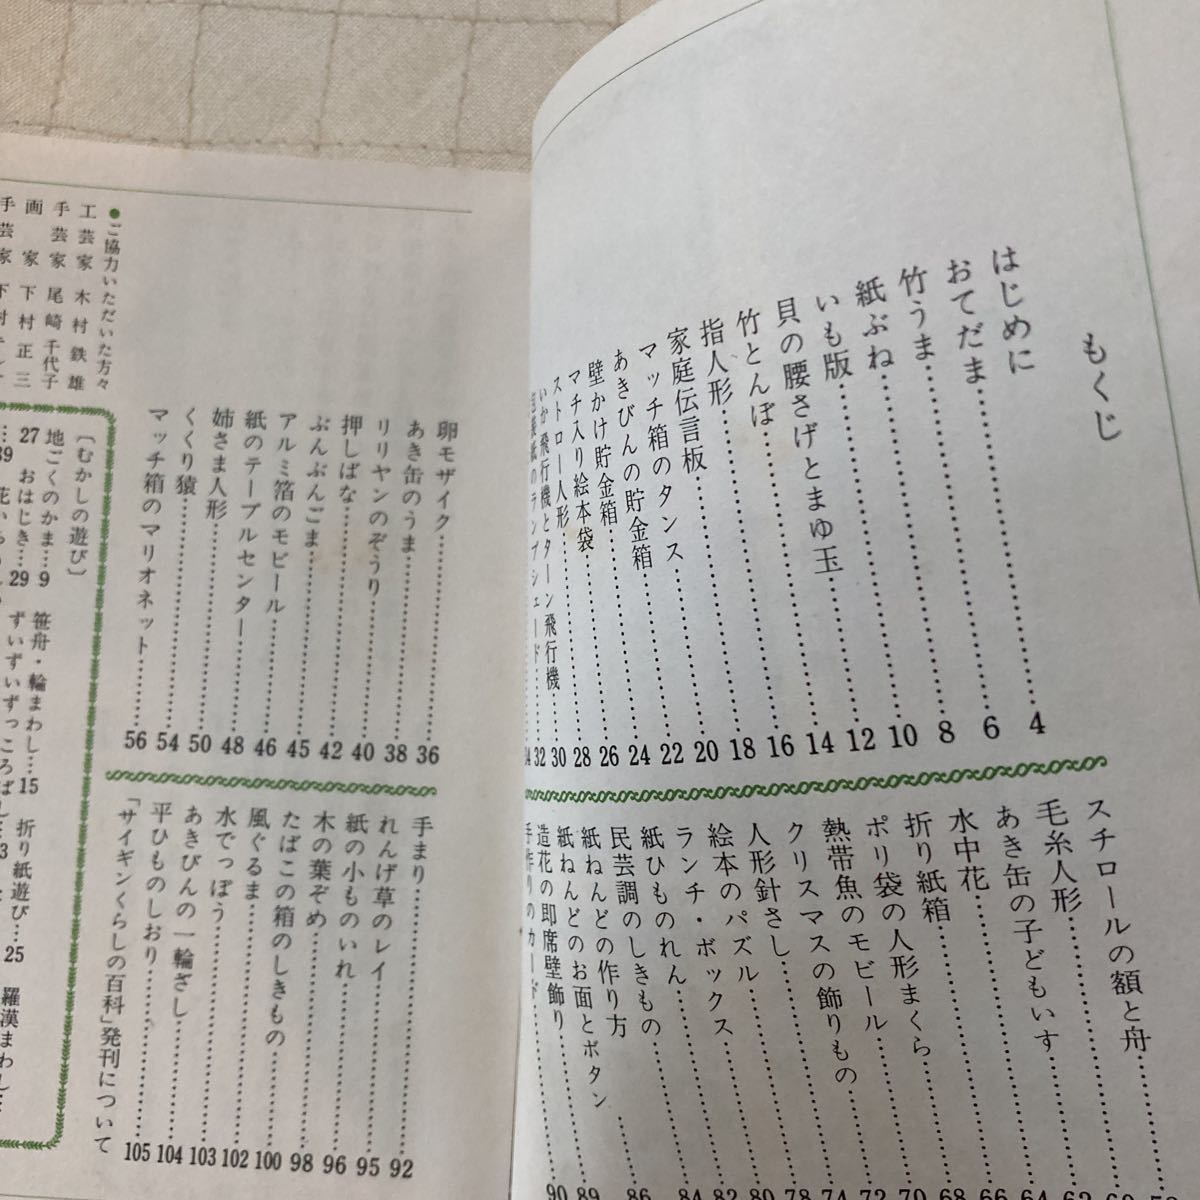 もくじ
はじめに…………4
おてだま…………6
竹うま…………8
紙ぶね…………10
いも版…………12
貝の腰さげとまゆ玉…………14
竹とんぼ…………16
指人形…………18
家庭伝言板…………20
マッチ箱のタンス…………22
あきびんの貯金箱…………24
壁かけ貯金箱…………26
マチ入り絵本袋…………28
ストロー人形…………30
いか飛行機とターン飛行機…………32
スチロールの額と舟
毛糸人形…………
あき缶の子どもいす…………62
水中花…………64
折り紙箱…………66
ポリ袋の人形まくら…………68
熱帯魚のモビール…………70
クリスマスの飾りもの…………72
人形針さし…………74
絵本のパズル…………78
ランチ・ボックス…………80
紙ひものれん…………82
民芸調のしきもの…………84
紙ねんどの作り方…………86
紙ねんどのお面とボタン
造花の即席壁飾り…………89
手作りのカード…………90
卵モザイク…………36
あき缶のうま…………38
リリヤンのぞうり…………40
押しばな…………42
ぶんぶんごま…………45
アルミ箔のモビール…………46
紙のテーブルセンター…………48
姉さま人形…………50
くくり猿…………54
マッチ箱のマリオネット…………56
手まり…………92
れんげ草のレイ…………95
紙の小ものいれ…………96
木の葉ぞめ…………98
たばこの箱のしきもの…………100
風ぐるま…………102
水でっぽう…………103
あきびんの一輪ざし…………104
平ひものしおり…………105
「サイギンくらしの百科」発刊について
●ご協力いただいた方々
工芸家 木村鉄雄
手芸家 尾崎千代子
画家 下村正三
手芸家 下村
〔むかしの遊び〕
地ごくのかま…9 笹舟・輪まわし…15 折り紙遊び…25 羅漢まわし…
27 おはじき…29 ずいずいずっころばし…